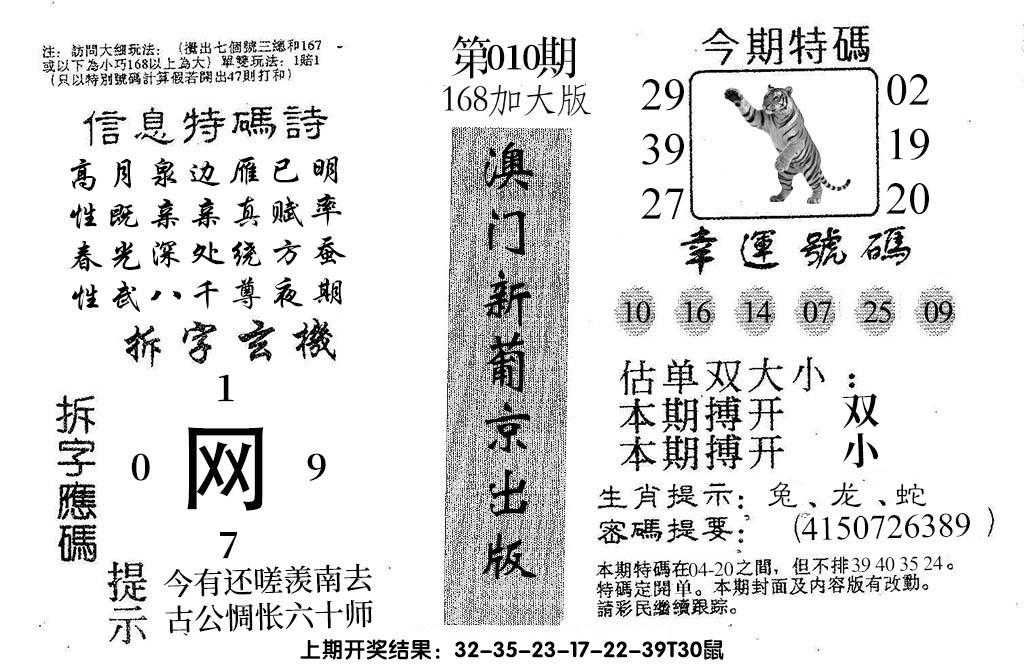 注：訪問大细玩法：（攪出七個號三總和167
或以下為小巧168以上為大）單雙玩法：1賠1
（只以特別號碼計算假若開出47則打和）
信息特碼詩
高月泉边雁已明
性既亲亲真赋率
春光深处绕方蚕
性武八千尊夜期
拆字玄機
拆字應碼
1
0 网 9
7
提示
今有还嗟羡南去
古公惆怅六十师
第010期
168加大版
澳门新葡京出版
今期特碼
29 02
39 19
27 20
幸運號碼
10 16 14 07 25 09
估单双大小：
本期搏开 双
本期搏开 小
生肖提示：兔、龙、蛇
密碼提要：（4150726389）
本期特碼在04-20之間，但不排39 40 35 24。
特碼定開单。本期封面及内容版有改動。
請彩民繼續跟踪。
上期开奖结果：32-35-23-17-22-39T30鼠